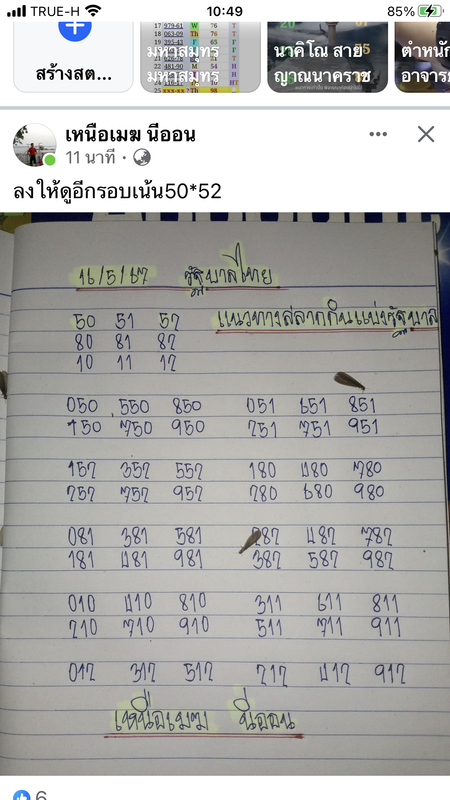 TRUE-H 10:49 85%
17 979-61 W 76 T
18 063-09 Th 76 T
19 205-43 F 65 F
สร้างสต...
มหาสมุทร มหาสมุทร
นาคิโณ สาย ญาณนาคราช
ตำหนัก อาจารย
เหนือเมฆ นีออน
11 นาที
ลงให้ดูอีกรอบเน้น50*52
16/5/67 รัฐบาลไทย
50 51 52 แนวทางสลากกินแบ่งรัฐบาล
80 81 82
10 11 12
050 550 850 051 651 851
150 750 950 251 751 951
152 352 552 180 480 780
252 752 952 280 680 980
081 381 581 282 482 782
181 481 981 382 582 982
010 410 810 311 611 811
210 710 910 511 711 911
012 312 512 212 412 912
เหนือเมฆ นีออน
6